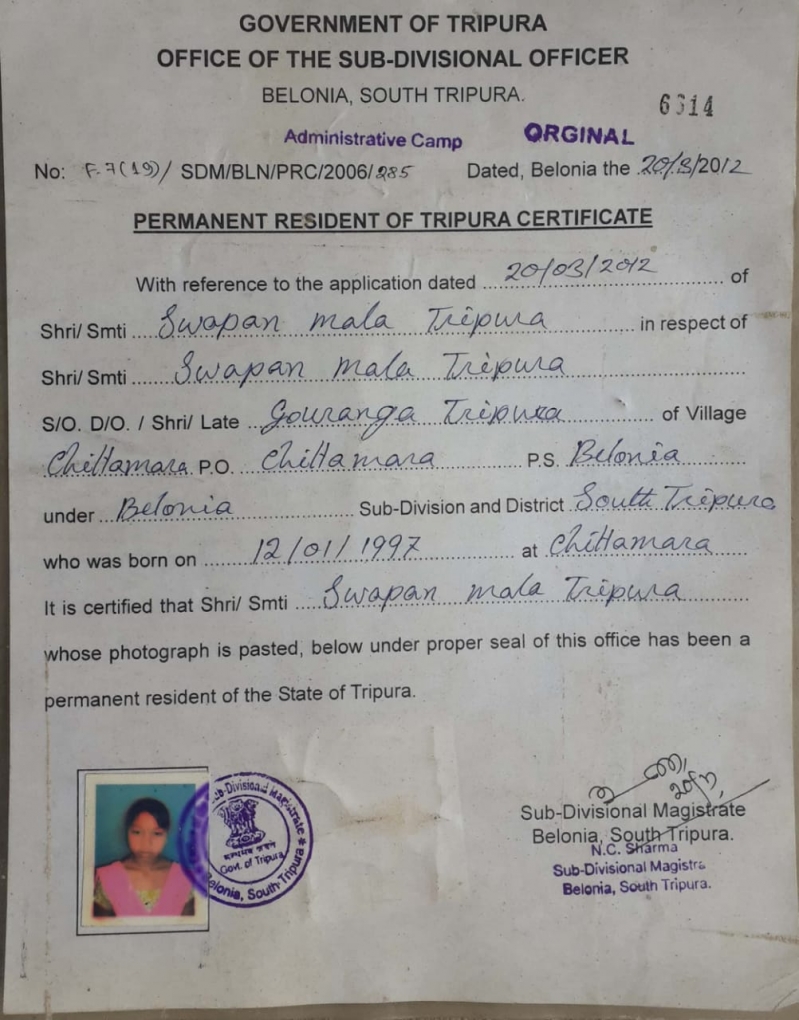 GOVERNMENT OF TRIPURA
OFFICE OF THE SUB-DIVISIONAL OFFICER
BELONIA, SOUTH TRIPURA.
6314
Administrative Camp ORGINAL
No: F.7(19)/ SDM/BLN/PRC/2006/285 Dated, Belonia the 20/3/2012
PERMANENT RESIDENT OF TRIPURA CERTIFICATE
With reference to the application dated 20/03/2012 of
Shri/ Smti Swapan mala Tripura in respect of
Shri/ Smti Swapan mala Tripura
S/O. D/O. / Shri/ Late Gouranga Tripura of Village
Chittamara P.O. Chittamara P.S. Belonia
under Belonia Sub-Division and District South Tripura
who was born on 12/01/1997 at Chittamara
It is certified that Shri/ Smti Swapan mala Tripura
whose photograph is pasted, below under proper seal of this office has been a
permanent resident of the State of Tripura.
Sub-Divisional Magistrate
Govt. of Tripura
Belonia, South Tripura
Sub-Divisional Magistrate
Belonia, South Tripura.
N.C. Sharma
Sub-Divisional Magistra
Belonia, South Tripura.